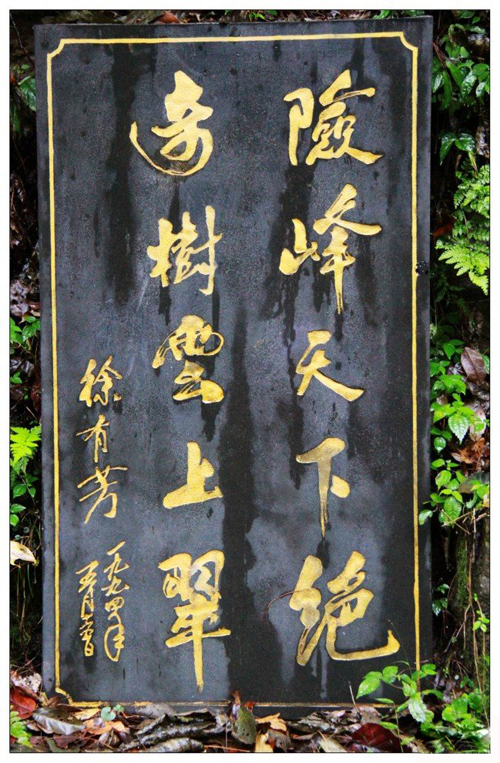 險峰天下絕
奇樹雲上翠
徐有芳
一九九四年
五月六日